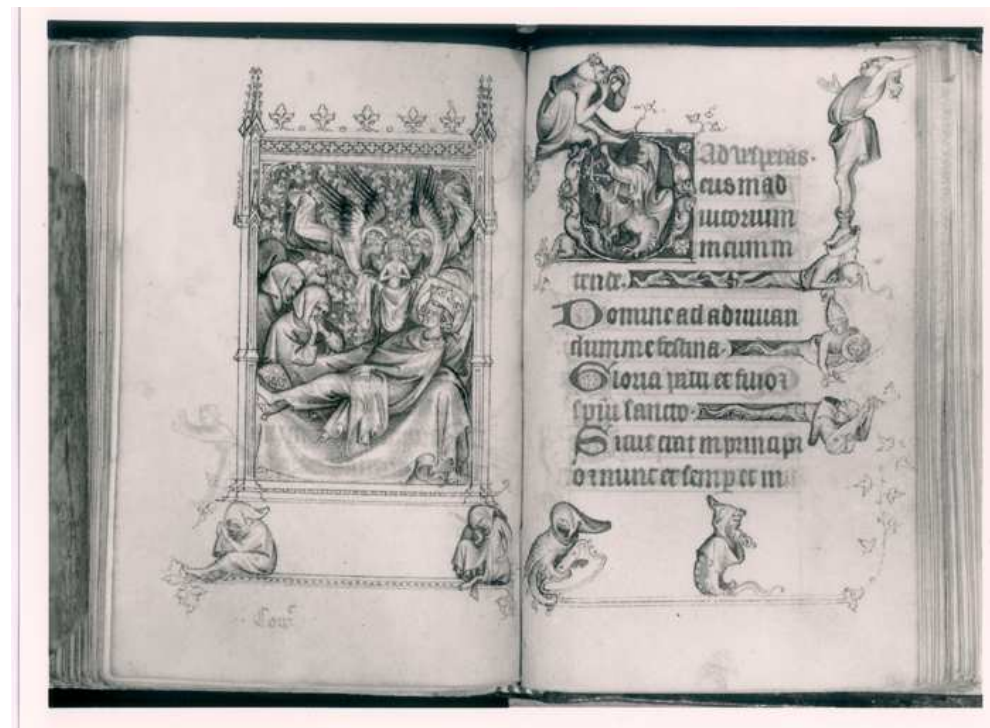 Ad vesperas.
Deus in ad
iutorium
meum in
tende.
Domine ad adiuuan
dum me festina.
Gloria patri et filio
spiritu sancto.
Sicut erat in principi
o et nunc et semper et in